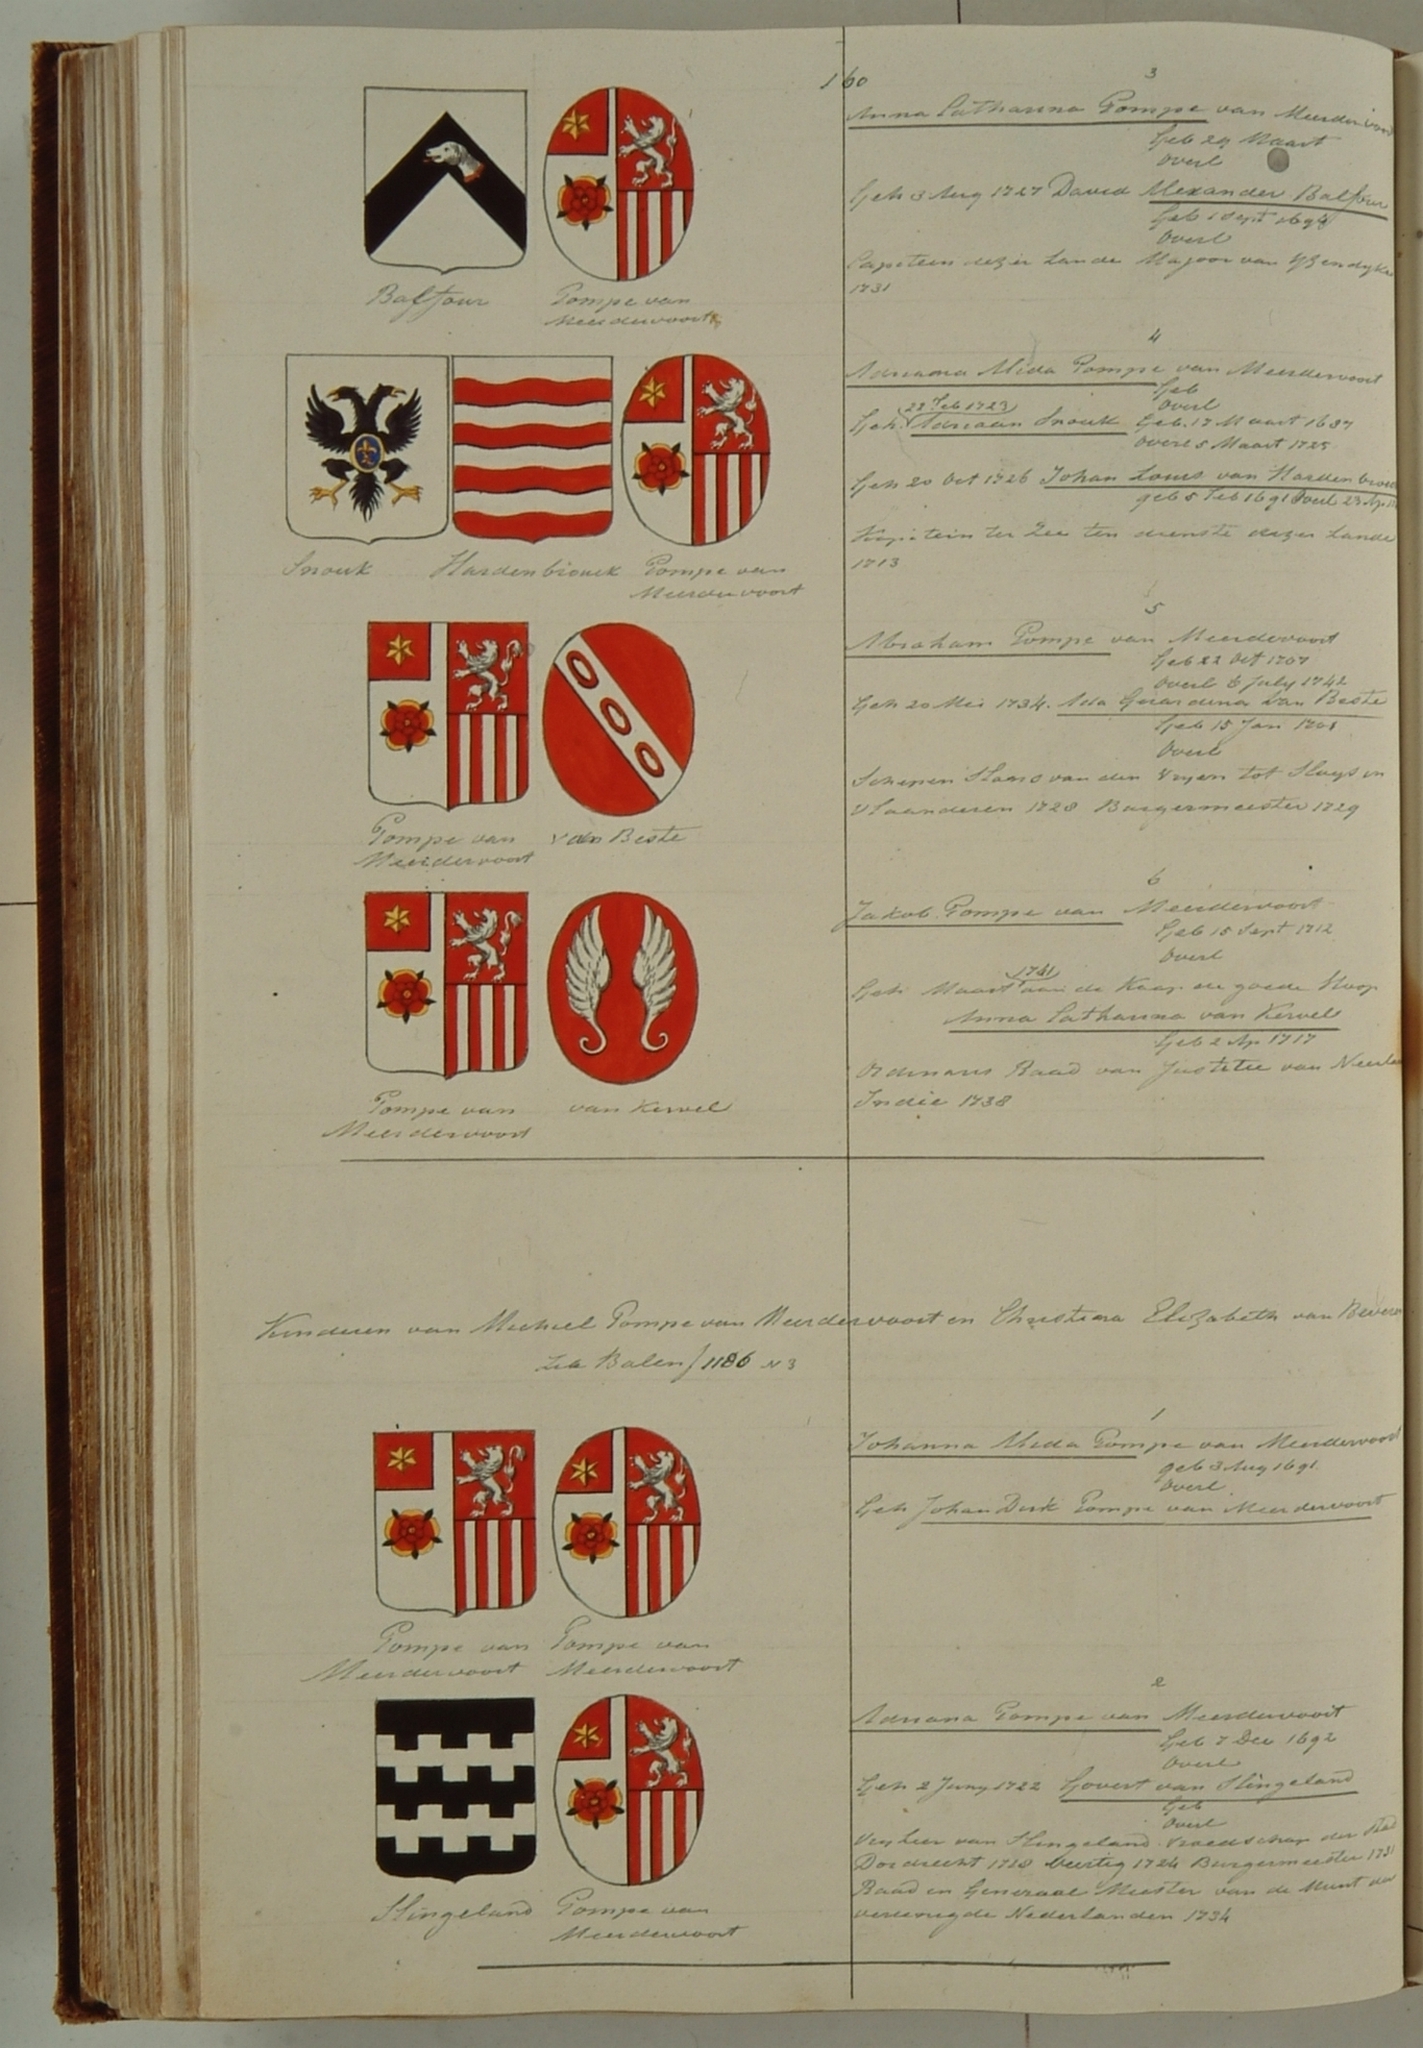 160
3
Anna Catharina Pompe van Meerdervoort
Geb 29 Maart
Overl
Geh 3 Aug 1727 David Alexander Balfour
Geb 1 Sept 1694
Overl
Capitein dezer Lande Majoor van Yzendyke
1731
Balfour
Pompe van
Meerdervoort
4
Adriana Alida Pompe van Meerdervoort
Geb
Overl
22 Feb 1723
Geh. Adriaan Snouk Geb. 17 Maart 1687
Overl 5 Maart 1725
Geh 20 Oct 1726 Johan Louis van Hardenbroek
geb 5 Feb 1691 Overl 23 Ap
Kapitein ter Zee ten dienste dezer Lande
1713
Snouk
Hardenbroek
Pompe van
Meerdervoort
5
Abraham Pompe van Meerdervoort
Geb 22 Oct 1707
Overl 6 July 1742
Geh 20 Mei 1734. Ada Geardina van Beste
Geb 15 Jan 1708
Overl
Schepen Slands van den Vryen tot Sluys in
Vlaanderen 1728 Burgermeester 1729
Pompe van
Meerdervoort
van Beste
6
Jakob Pompe van Meerdervoort
Geb 15 Sept 1712
Overl
1741
Geh Maart aan de Kaap de goede Hoop
Anna Catharina van Kervel
Geb 2 Ap 1717
Ordinaris Raad van Justitie van Neerlan
Indie 1738
Pompe van
Meerdervoort
van Kervel
Kinderen van Michiel Pompe van Meerdervoort en Christina Elizabeth van Bevere
zie Balen f 1186 N 3
1
Johanna Alida Pompe van Meerdervoort
geb 3 Aug 1691.
Overl
Geh Johan Dirk Pompe van Meerdervoort
Pompe van
Meerdervoort
Pompe van
Meerdervoort
2
Adriana Pompe van Meerdervoort
Geb 7 Dec 1692
Overl
Geh 2 Juny 1722 Govert van Slingeland
Geb
Overl
Vryheer van Slingeland. Vroedschap der Stad
Dordrecht 1718 Veertig 1724 Burgermeester 1731
Raad en Generaal Meester van de Munt der
vereenigde Nederlanden 1734
Slingeland
Pompe van
Meerdervoort